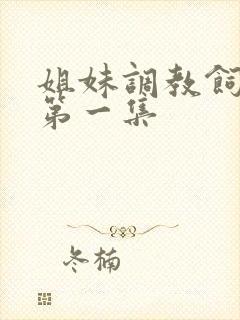 姐妹調教飼
第一集
冬楠